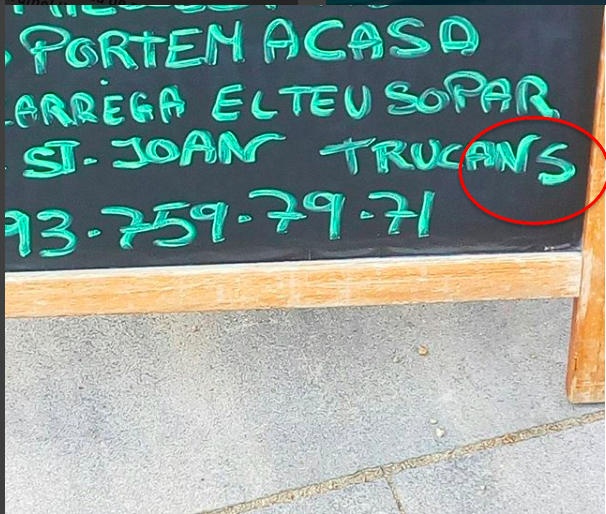 PORTEM A CASA
ARREGA EL TEU SOPAR
ST. JOAN TRUCANS
93.759.79.71